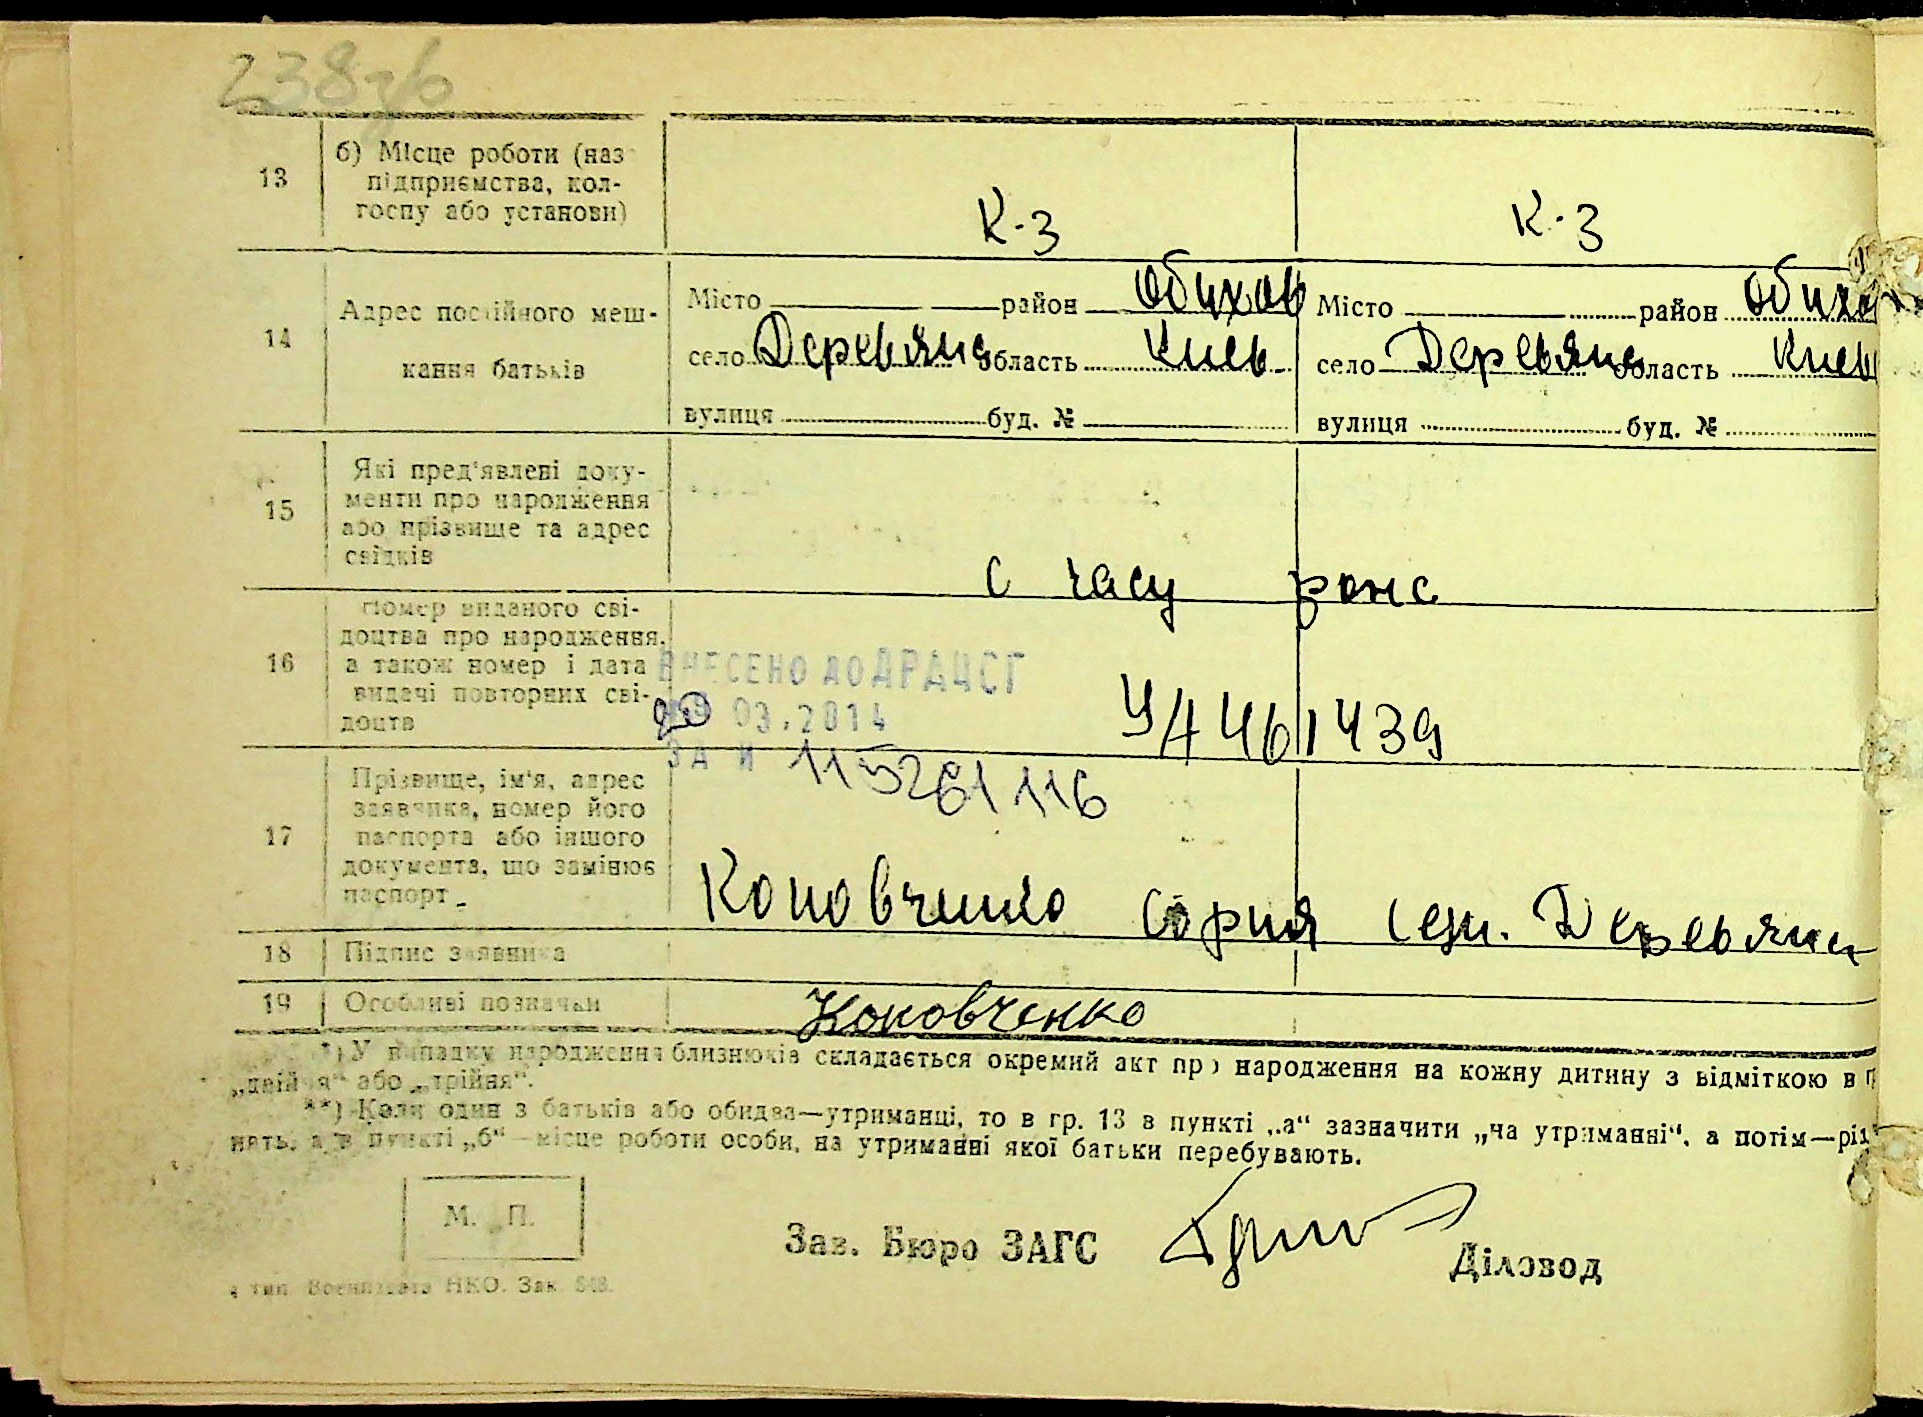 238зб
13
б) Місце роботи (наз
підприємства, кол-
госпу або установи)
К-з
К-з
14
Адрес постійного меш-
кання батьків
Місто район Обихов
село Деревяна область Киев
вулиця буд. №
Місто район Обихо
село Деревяна область Киев
вулиця буд. №
15
Які пред'явлені доку-
менти про народження
або прізвище та адрес
свідків
с часу
16
Номер виданого сві-
доцтва про народження,
а також номер і дата
видачі повторних сві-
доцтв
ВНЕСЕНО ДО ДРАЦСГ
03.2014
ЗА № 115261116
УА 461439
17
Прізвище, ім'я, адрес
заявника, номер його
паспорта або іншого
документа, що замінює
паспорт
Коновченко София сел. Деревяна
18
Підпис заявника
19
Особливі позначки
Коновченко
*) У випадку народження близнюків складається окремий акт про народження на кожну дитину з відміткою в
„двійня“ або „трійня“.
**) Коли один з батьків або обидва—утриманці, то в гр. 13 в пункті „а“ зазначити „на утриманні“, а потім—рід
нять, а в пункті „б“—місце роботи особи, на утриманні якої батьки перебувають.
М. П.
Зав. Бюро ЗАГС
Діловод
тип. Воениздата НКО. Зак. 548.